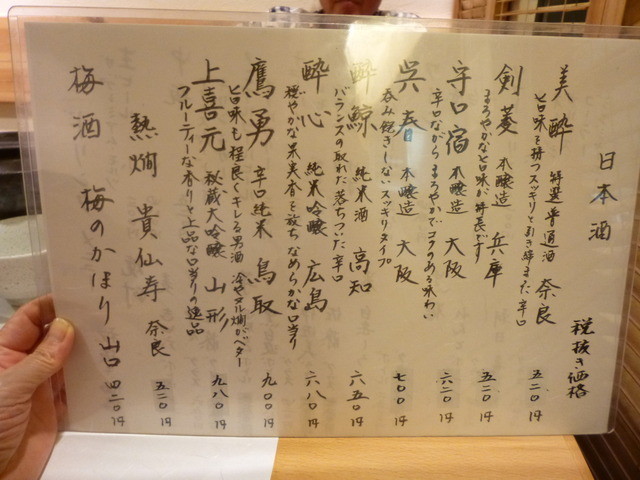 日本酒
税抜き価格
美酔 特選普通酒 奈良 五二0円
旨味を持つスッキリと引き締まった辛口
剣菱 本醸造 兵庫 五二0円
まろやかな旨味が特長です
守口宿 本醸造 大阪 六二0円
辛口ながらまろやかでコクのある味わい
呉春 本醸造 大阪 七00円
呑み飽きしないスッキリタイプ
酔鯨 純米酒 高知 六五0円
バランスの取れた落ちついた辛口
酔心 純米吟醸 広島 六八0円
穏やかな果実香を放ちなめらかな口当り
鷹勇 辛口純米 鳥取 九00円
旨味も程良くキレる男酒 冷やヌル燗がベター
上喜元 秘蔵大吟醸 山形 九八0円
フルーティーな香りと上品な口当りの逸品
熱燗 貴仙寿 奈良 五二0円
梅酒 梅のかほり 山口 四二0円